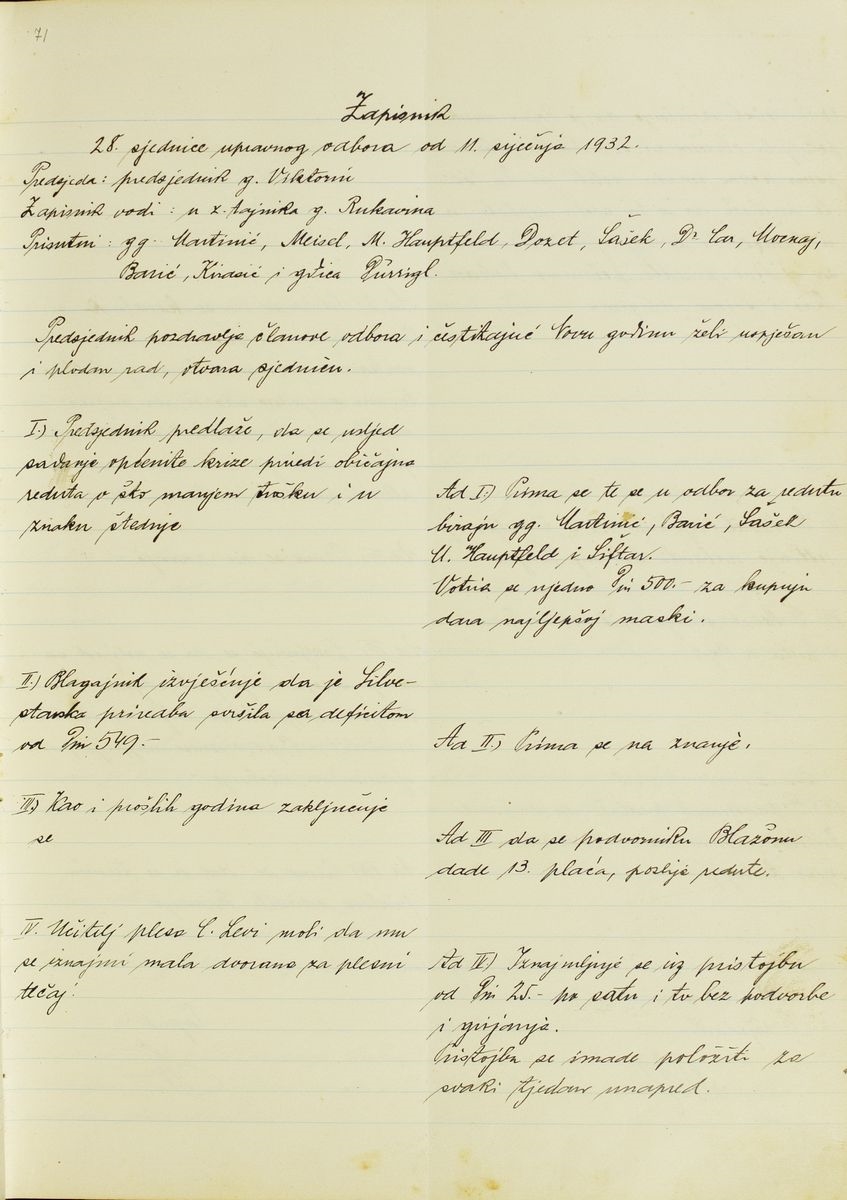 71
Zapisnik
28. sjednice upravnog odbora od 11. siječnja 1932.
Predsjeda: predsjednik g. Viktorin
Zapisnik vodi: u z. tajnika g. Rukavina
Prisutni: gg. Martinić, Meisel, M. Hauptfeld, Dozet, Šašek, Dr Car,
Barić, Kirasić i gđica Pürrigl.
Predsjednik pozdravlja članove odbora i čestitajuć Novu godinu želi uspješan
i plodan rad, otvara sjednicu.
I.) Predsjednik predlaže, da se usljed
sadanje općenite krize priredi običajna
reduta o što manjem trošku i u
znaku štednje
Ad I.) Prima se te se u odbor za redutu
biraju gg. Martinić, Barić, Šašek
M. Hauptfeld i Šiftar.
Votira se ujedno Din 500.- za kupnju
dara najljepšoj maski.
II.) Blagajnik izvješćuje da je Silve-
starska priredba svršila sa deficitom
od Din 549.-
Ad II.) Prima se na znanje.
III.) Kao i prošlih godina zaključuje
se
Ad III da se podvorniku Blažonu
dade 13. plaća, poslije redute.
IV. Učitelj plesa C. Levi moli da mu
se iznajmi mala dvorana za plesni
tečaj.
Ad IV) Iznajmljuje se uz pristojbu
od Din 25.- po satu i to bez podvorbe
i grijanja.
Pristojba se imade položiti za
svaki tjedan unapred.